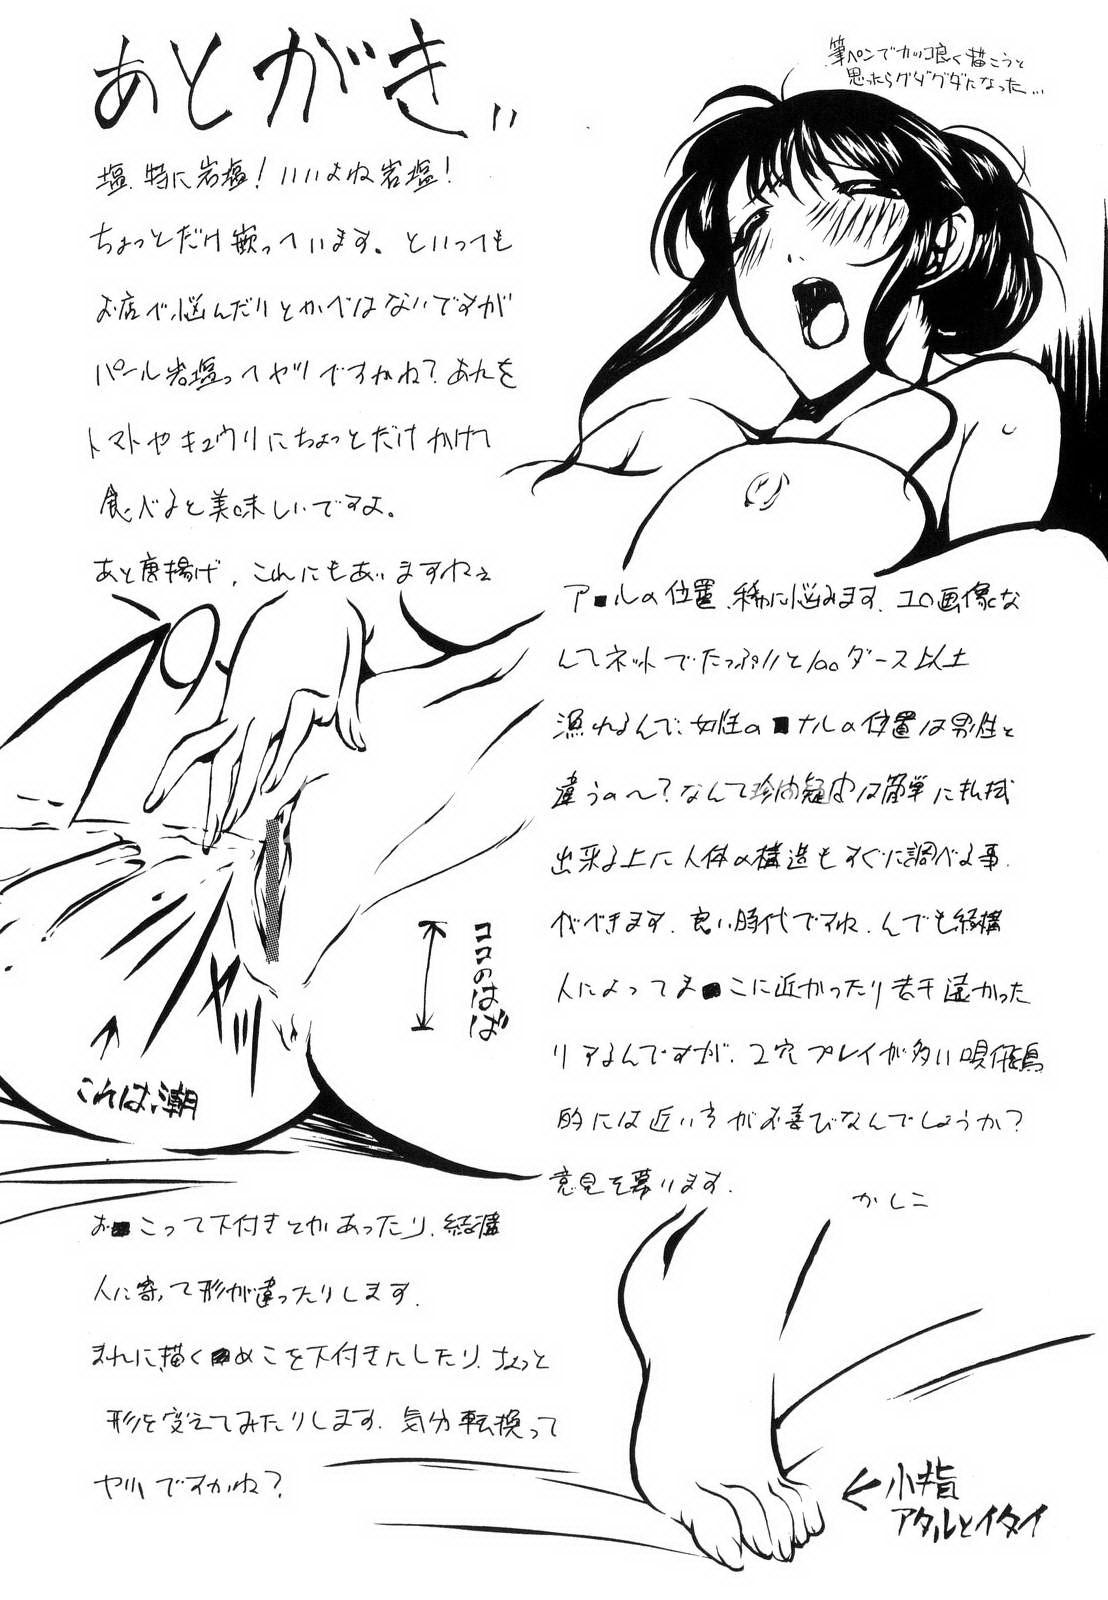 あとがき〃
筆ペンでカッコ良く描こうと
思ったらグダグダになった…
塩、特に岩塩!いいよね岩塩!
ちょっとだけ嵌っています。といっても
お店で悩んだりとかではないですが
パール岩塩ってヤツですかね?あれを
トマトやキュウリにちょっとだけかけて
食べると美味しいですよ。
あと唐揚げ、これにもあいますねぇ
ア■ルの位置、稀に悩みます、エロ画像な
んてネットでたっぷりと100ダース以上
漁れるんで、女性の■ナルの位置は男性と
違うの〜?なんて珍内疑内は簡単に払拭
出来る上に人体の構造もすぐに調べる事
ができます、良い時代ですね、んでも結構
人によってま■こに近かったり若干遠かった
リするんですが、2穴プレイが多い唄飛鳥
的には近い方がお喜びなんでしょうか?
意見を募ります、
かしこ
ココのはば
これは、潮
お■こって下付きとかあったり、結構
人に寄って形が違ったりします、
まれに描く■めこを下付きにしたり、ちょっと
形を変えてみたりします、気分転換って
ヤツですかね?
←小指
アタルとイタイ